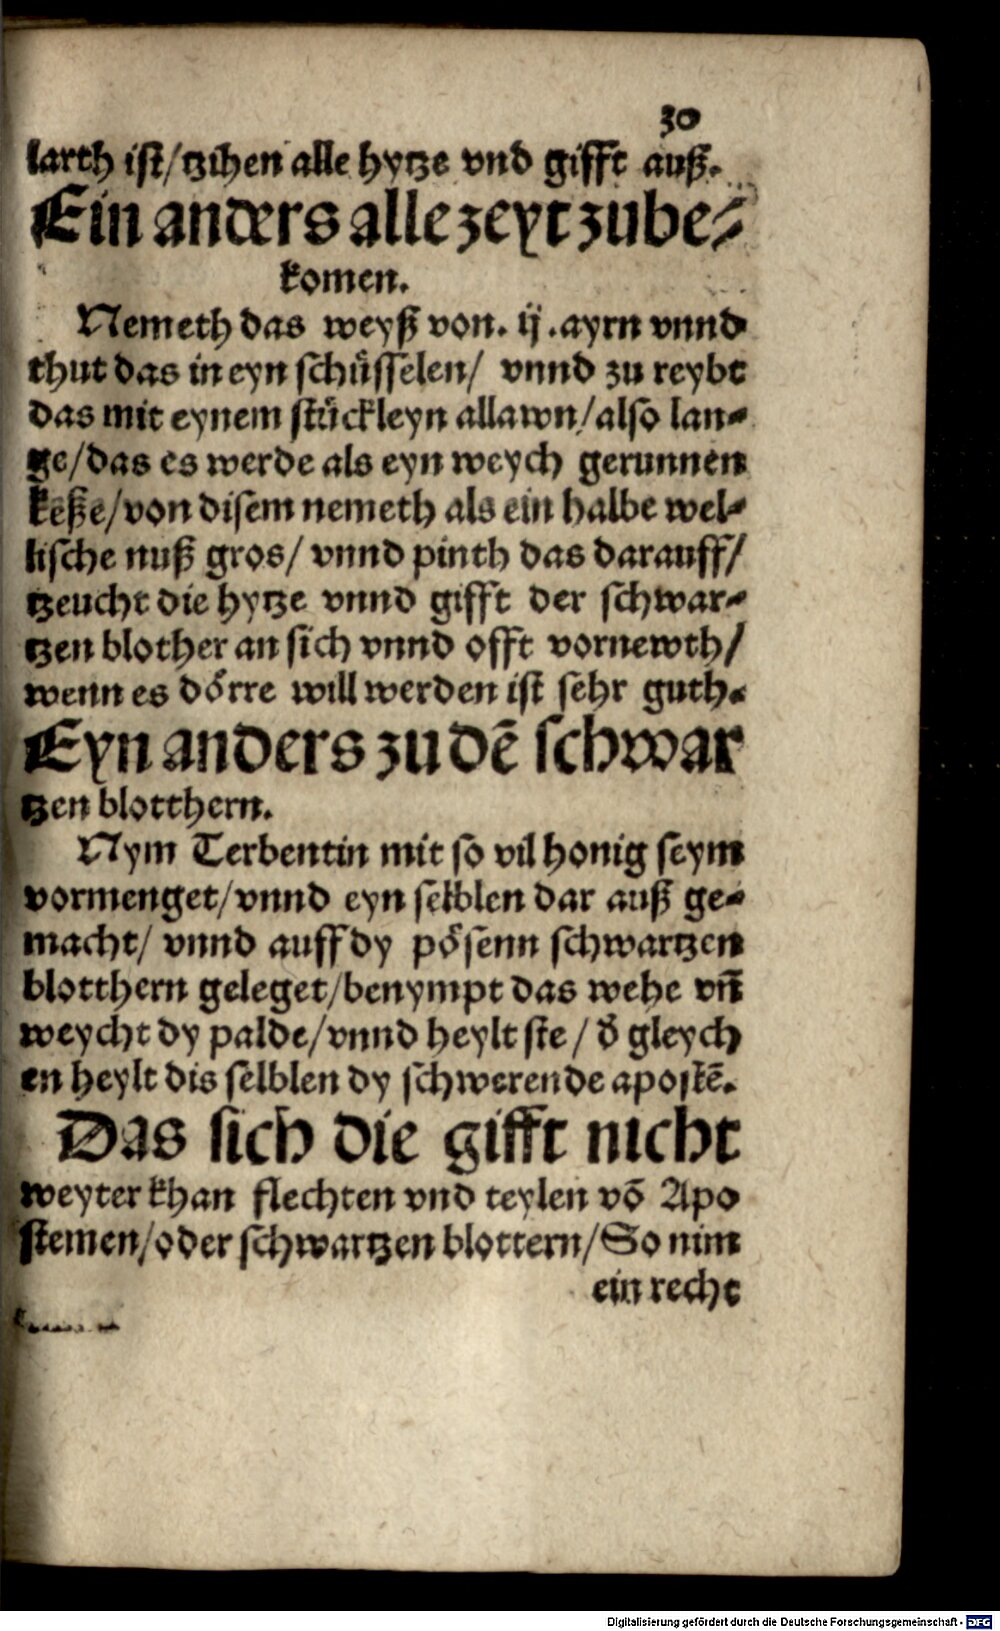 30
larth ist/tzihen alle hytze vnd gifft auß.
Ein anders alle zeyt zube⸗
komen.
Nemeth das weyß von. ij .ayrn vnnd
thut das in eyn schüsselen/ vnnd zu reybt
das mit eynem stückleyn allawn/also lan⸗
ge/das es werde als eyn weych gerunnen
keße/von disem nemeth als ein halbe wel⸗
lische nuß gros/ vnnd pinth das darauff/
tzeucht die hytze vnnd gifft der schwar⸗
tzen blother an sich vnnd offt vornewth/
wenn es dörre will werden ist sehr guth.
Eyn anders zu dē schwar
tzen blotthern.
Nym Terbentin mit so vil honig seym
vormenget/vnnd eyn selblen dar auß ge⸗
macht/ vnnd auff dy pösenn schwartzen
blotthern geleget/benympt das wehe vn̄
weycht dy palde/vnnd heylt ste/ d̕ gleych
en heylt dis selblen dy schwerende apostē.
Das sich die gifft nicht
weyter khan flechten vnd teylen vō Apo
stemen/oder schwartzen blottern/So nim
ein recht
Digitalisierung gefördert durch die Deutsche Forschungsgemeinschaft - DFG